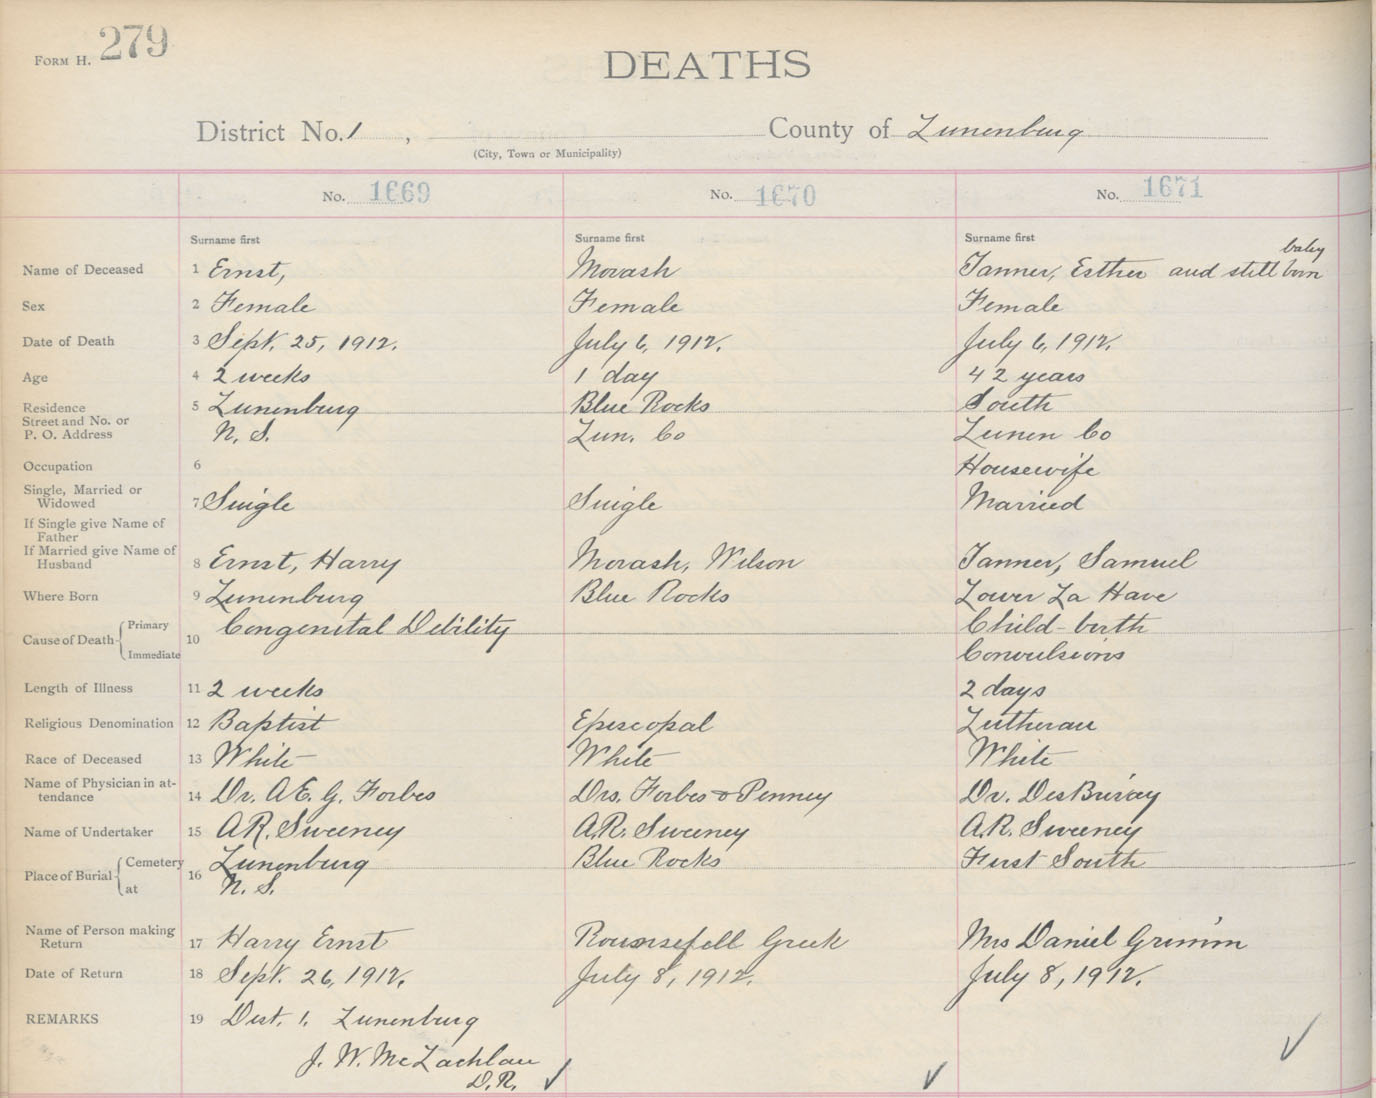 FORM H. 279
DEATHS
District No. 1, County of Lunenburg
(City, Town or Municipality)
No. 1669 No. 1670 No. 1671
Surname first Surname first Surname first
baby
Name of Deceased 1 Ernst, Morash Tanner, Esther and still born
Sex 2 Female Female Female
Date of Death 3 Sept. 25, 1912. July 6, 1912. July 6, 1912.
Age 4 2 weeks 1 day 42 years
Residence 5 Lunenburg Blue Rocks South
Street and No. or
P. O. Address N. S. Lun. Co Lunen Co
Occupation 6 Housewife
Single, Married or
Widowed 7 Single Single Married
If Single give Name of
Father
If Married give Name of
Husband 8 Ernst, Harry Morash, Wilson Tanner, Samuel
Where Born 9 Lunenburg Blue Rocks Lower La Have
Cause of Death Primary 10 Congenital Debility Child-birth
Immediate Convulsions
Length of Illness 11 2 weeks 2 days
Religious Denomination 12 Baptist Episcopal Lutheran
Race of Deceased 13 White White White
Name of Physician in at-
tendance 14 Dr. A.E. G. Forbes Drs. Forbes & Penney Dr. DesBrisay
Name of Undertaker 15 A.R. Sweeney A.R. Sweeney A.R. Sweeney
Place of Burial Cemetery 16 Lunenburg Blue Rocks First South
at N. S.
Name of Person making
Return 17 Harry Ernst Rounsefell Greek Mrs Daniel Grimm
Date of Return 18 Sept. 26, 1912. July 8, 1912. July 8, 1912.
REMARKS 19 Dist. 1. Lunenburg
J. W. McLachlan
D.R.